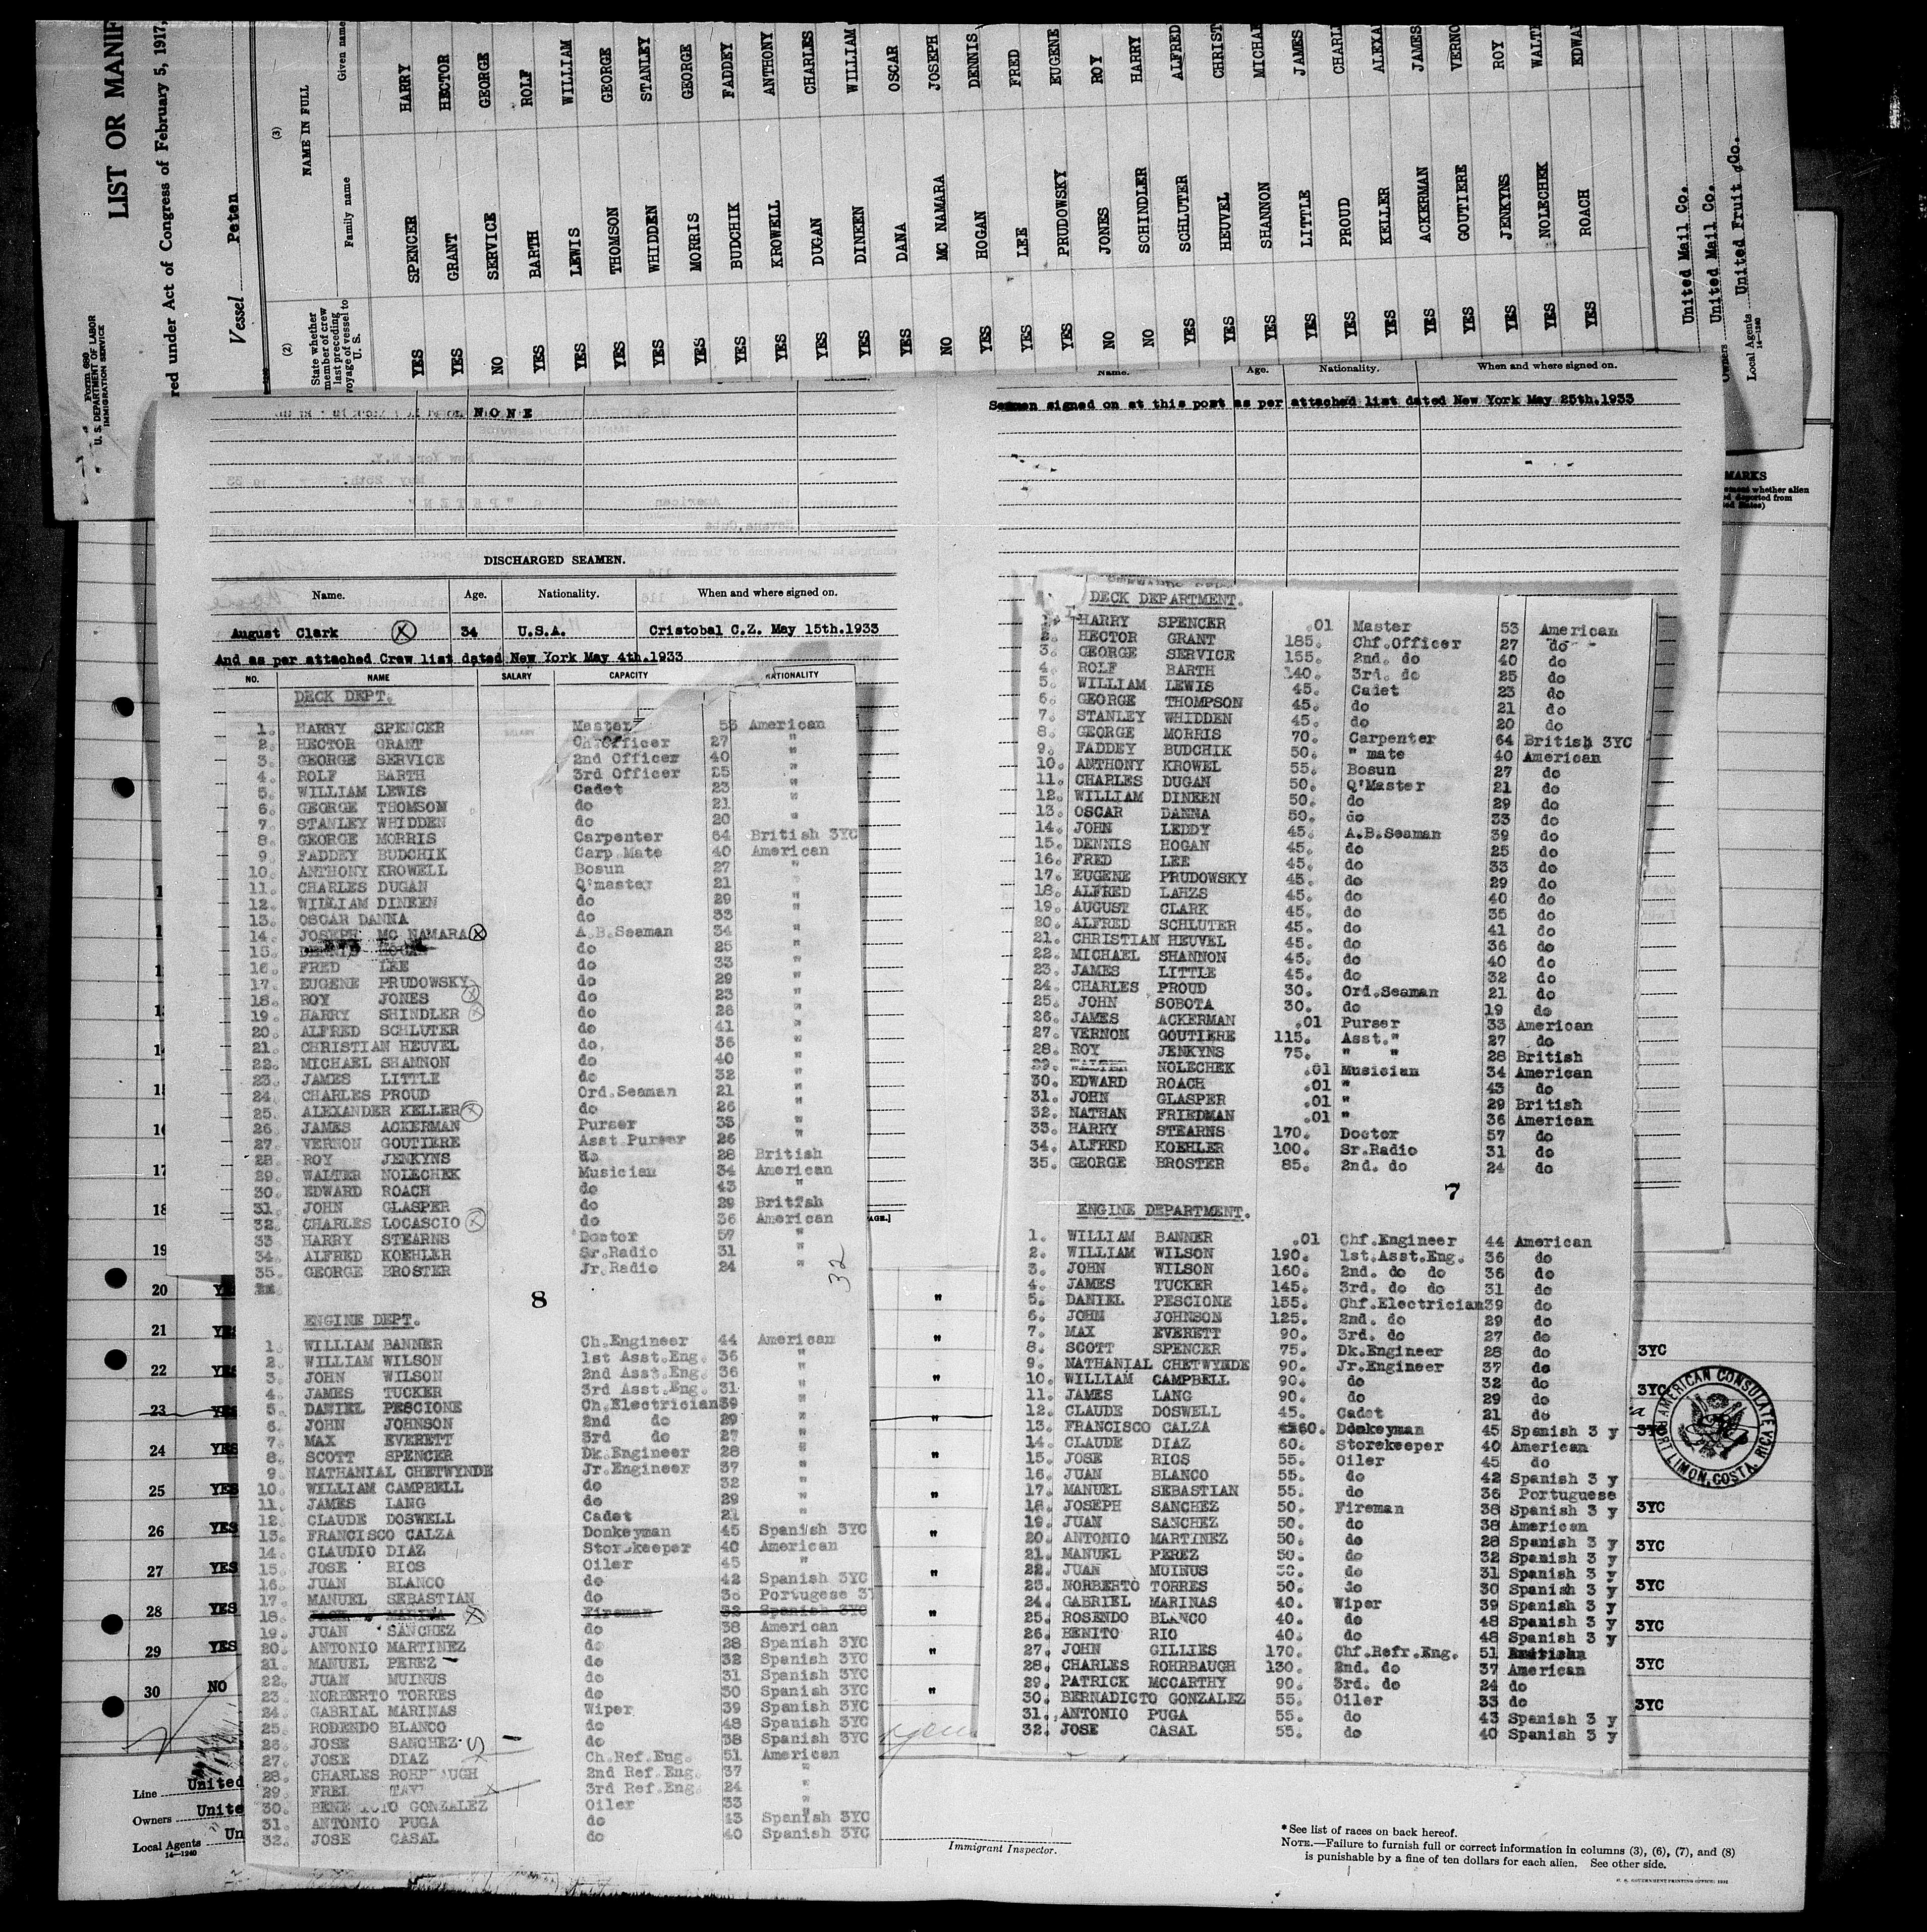 LIST OR MANIF
red under Act of Congress of February 5, 1917,
Vessel Peten
Form 689
U. S. DEPARTMENT OF LABOR
IMMIGRATION SERVICE
(2)
State whether member of crew last preceding voyage of vessel to U. S.
(3)
NAME IN FULL
Family name Given name
YES SPENCER HARRY
YES GRANT HECTOR
NO SERVICE GEORGE
YES BARTH ROLF
YES LEWIS WILLIAM
YES THOMSON GEORGE
YES WHIDDEN STANLEY
YES MORRIS GEORGE
YES BUDCHIK FADDEY
YES KROWELL ANTHONY
YES DUGAN CHARLES
YES DINEEN WILLIAM
YES DANA OSCAR
NO MC NAMARA JOSEPH
YES HOGAN DENNIS
YES LEE FRED
YES PRUDOWSKY EUGENE
NO JONES ROY
NO SCHINDLER HARRY
YES SCHLUTER ALFRED
YES HEUVEL CHRIST
YES SHANNON MICHAE
YES LITTLE JAMES
YES PROUD CHARL
YES KELLER ALEXA
YES ACKERMAN JAMES
YES GOUTIERE VERNO
YES JENKYNS ROY
YES NOLECHEK WALTE
YES ROACH EDWA
United Mail Co.
Owners United Mail Co.
Local Agents United Fruit Co.
14—1240
NONE
DISCHARGED SEAMEN.
Name. Age. Nationality. When and where signed on.
August Clark 34 U.S.A. Cristobal C.Z. May 15th.1933
And as per attached Crew list dated New York May 4th.1933
NO. NAME SALARY CAPACITY NATIONALITY
DECK DEPT.
1. HARRY SPENCER Master 53 American
2. HECTOR GRANT Ch.Officer 27 "
3. GEORGE SERVICE 2nd Officer 40 "
4. ROLF BARTH 3rd Officer 25 "
5. WILLIAM LEWIS Cadet 23 "
6. GEORGE THOMSON do 21 "
7. STANLEY WHIDDEN do 20 "
8. GEORGE MORRIS Carpenter 64 British 3YC
9. FADDEY BUDCHIK Carp Mate 40 American
10. ANTHONY KROWELL Bosun 27 "
11. CHARLES DUGAN Q'master 21 "
12. WILLIAM DINEEN do 29 "
13. OSCAR DANNA do 33 "
14. JOSEPH MC NAMARA A.B.Seaman 34 "
15. DENNIS HOGAN do 25 "
16. FRED LEE do 33 "
17. EUGENE PRUDOWSKY do 29 "
18. ROY JONES do 23 "
19. HARRY SHINDLER do 26 "
20. ALFRED SCHLUTER do 41 "
21. CHRISTIAN HEUVEL do. 36 "
22. MICHAEL SHANNON do 40 "
23. JAMES LITTLE do 32 "
24. CHARLES PROUD Ord.Seaman 21 "
25. ALEXANDER KELLER do 26 "
26. JAMES ACKERMAN Purser 33 "
27. VERNON GOUTIERE Asst Purser 26 "
28. ROY JENKYNS do 28 British
29. WALTER NOLECHEK Musician 34 American
30. EDWARD ROACH do 43 "
31. JOHN GLASPER do 29 British
32. CHARLES LOCASCIO do 36 American
33 HARRY STEARNS Doctor 57 "
34. ALFRED KOEHLER Sr.Radio 31 "
35. GEORGE BROSTER Jr.Radio 24 "
32
8
ENGINE DEPT.
1. WILLIAM BANNER Ch.Engineer 44 American
2. WILLIAM WILSON 1st Asst.Eng. 36 "
3. JOHN WILSON 2nd Asst.Eng. 36 "
4. JAMES TUCKER 3rd Asst.Eng. 31 "
5. DANIEL PESCIONE Ch.Electrician 39 "
6. JOHN JOHNSON 2nd do 29 "
7. MAX EVERETT 3rd do 27 "
8. SCOTT SPENCER Dk.Engineer 28 "
9. NATHANIAL CHETWYNDE Jr.Engineer 37 "
10. WILLIAM CAMPBELL do 32 "
11. JAMES LANG do 29 "
12. CLAUDE DOSWELL Cadet 21 "
13. FRANCISCO CALZA Donkeyman 45 Spanish 3YC
14. CLAUDIO DIAZ Storekeeper 40 American
15. JOSE RIOS Oiler 45 "
16. JUAN BLANCO do 42 Spanish 3YC
17. MANUEL SEBASTIAN do 36 Portugese 3Y
18. MARINA Fireman 32 Spanish 3YC
19. JUAN SANCHEZ do 38 American
20. ANTONIO MARTINEZ do 28 Spanish 3YC
21. MANUEL PEREZ do 32 Spanish 3YC
22. JUAN MUINUS do 31 Spanish 3YC
23. NORBERTO TORRES do 30 Spanish 3YC
24. GABRIAL MARINAS Wiper 39 Spanish 3YC
25. RODENDO BLANCO do 48 Spanish 3YC
26. JOSE SANCHEZ do 38 Spanish 3YC
27. JOSE DIAZ Ch.Ref.Eng. 51 American
28. CHARLES ROHRBAUGH 2nd Ref.Eng. 37 "
29. 3rd Ref.Eng. 24 "
30. BENEDICTO GONZALEZ Oiler 33 "
31. ANTONIO PUGA do 43 Spanish 3YC
32. JOSE CASAL do 40 Spanish 3YC
Name. Age. Nationality. When and where signed on.
Seamen signed on at this post as per attached list dated New York May 25th.1933
DECK DEPARTMENT.
1. HARRY SPENCER .01 Master 53 American
2. HECTOR GRANT 185. Chf.Officer 27 do
3. GEORGE SERVICE 155. 2nd. do 40 do
4. ROLF BARTH 140. 3rd. do 25 do
5. WILLIAM LEWIS 45. Cadet 23 do
6. GEORGE THOMPSON 45. do 21 do
7. STANLEY WHIDDEN 45. do 20 do
8. GEORGE MORRIS 70. Carpenter 64 British 3YC
9. FADDEY BUDCHIK 50. " mate 40 American
10. ANTHONY KROWEL 55. Bosun 27 do
11. CHARLES DUGAN 50. Q'Master 21 do
12. WILLIAM DINEEN 50. do 29 do
13. OSCAR DANNA 50. do 33 do
14. JOHN LEDDY 45. A.B.Seaman 39 do
15. DENNIS HOGAN 45. do 25 do
16. FRED LEE 45. do 33 do
17. EUGENE PRUDOWSKY 45. do 29 do
18. ALFRED LAHZS 45. do 40 do
19. AUGUST CLARK 45. do 35 do
20. ALFRED SCHLUTER 45. do 41 do
21. CHRISTIAN HEUVEL 45. do 36 do
22. MICHAEL SHANNON 45. do 40 do
23. JAMES LITTLE 45. do 32 do
24. CHARLES PROUD 30. Ord.Seaman 21 do
25. JOHN SOBOTA 30. do 19 do
26. JAMES ACKERMAN .01 Purser 33 American
27. VERNON GOUTIERE 115. Asst." 27 do
28. ROY JENKYNS 75. " " 28 British
29. WALTER NOLECHEK .01 Musician 34 American
30. EDWARD ROACH .01 " 43 do
31. JOHN GLASPER .01 " 29 British
32. NATHAN FRIEDMAN .01 " 36 American
33. HARRY STEARNS 170. Doctor 57 do
34. ALFRED KOEHLER 100. Sr.Radio 31 do
35. GEORGE BROSTER 85. 2nd. do 24 do
7
ENGINE DEPARTMENT.
1. WILLIAM BANNER .01 Chf.Engineer 44 American
2. WILLIAM WILSON 190. 1st.Asst.Eng. 36 do
3. JOHN WILSON 160. 2nd. do do 36 do
4. JAMES TUCKER 145. 3rd. do do 31 do
5. DANIEL PESCIONE 155. Chf.Electrician 39 do
6. JOHN JOHNSON 125. 2nd. do 29 do
7. MAX EVERETT 90. 3rd. do 27 do
8. SCOTT SPENCER 75. Dk.Engineer 28 do
9. NATHANIAL CHETWYNDE 90. Jr.Engineer 37 do
10. WILLIAM CAMPBELL 90. do 32 do
11. JAMES LANG 90. do 29 do
12. CLAUDE DOSWELL 45. Cadet 21 do
13. FRANCISCO CALZA 60. Donkeyman 45 Spanish 3 y
14. CLAUDE DIAZ 60. Storekeeper 40 American
15. JOSE RIOS 55. Oiler 45 do
16. JUAN BLANCO 55. do 42 Spanish 3 y
17. MANUEL SEBASTIAN 55. do 36 Portuguese
18. JOSEPH SANCHEZ 50. Fireman 38 Spanish 3 y
19. JUAN SANCHEZ 50. do 38 American
20. ANTONIO MARTINEZ 50. do 28 Spanish 3 y
21. MANUEL PEREZ 50. do 32 Spanish 3 y
22. JUAN MUINUS 50. do 31 Spanish 3 y
23. NORBERTO TORRES 50. do 30 Spanish 3 y
24. GABRIEL MARINAS 40. Wiper 39 Spanish 3 y
25. ROSENDO BLANCO 40. do 48 Spanish 3 y
26. BENITO RIO 40. do 48 Spanish 3 y
27. JOHN GILLIES 170. Chf.Refr.Eng. 51
28. CHARLES ROHRBAUGH 130. 2nd. do 37 American
29. PATRICK MCCARTHY 90. 3rd. do 24 do
30. BERNADICTO GONZALEZ 55. Oiler 33 do
31. ANTONIO PUGA 55. do 43 Spanish 3 y
32. JOSE CASAL 55. do 40 Spanish 3 y
18
19
20 YE
21 YES
22 YES 3YC
23 YES 3YC
24 YES
25 YES
26 YES 3YC
27 YES 3YC
28 YES 3YC
29 YES 3YC
30 NO 3YC
3YC
AMERICAN CONSULATE
PORT LIMON, COSTA RICA
Line United
Owners Unite
Local Agents Un
14—1240
Immigrant Inspector.
* See list of races on back hereof.
NOTE.—Failure to furnish full or correct information in columns (3), (6), (7), and (8)
is punishable by a fine of ten dollars for each alien. See other side.
U. S. GOVERNMENT PRINTING OFFICE: 1932